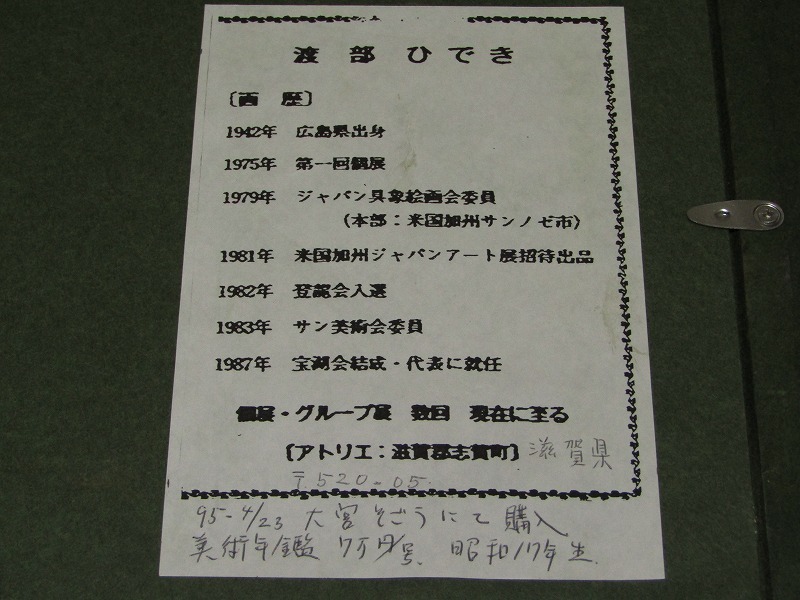 渡部 ひでき
〔画 歴〕
1942年 広島県出身
1975年 第一回個展
1979年 ジャパン具象絵画会委員
（本部：米国加州サンノゼ市）
1981年 米国加州ジャパンアート展招待出品
1982年 登龍会入選
1983年 サン美術会委員
1987年 宝湖会結成・代表に就任
個展・グループ展 数回 現在に至る
〔アトリエ：滋賀郡志賀町〕滋賀県
〒520-05
95-4/23 大宮そごうにて購入
美術年鑑 7万円/号 昭和17年生